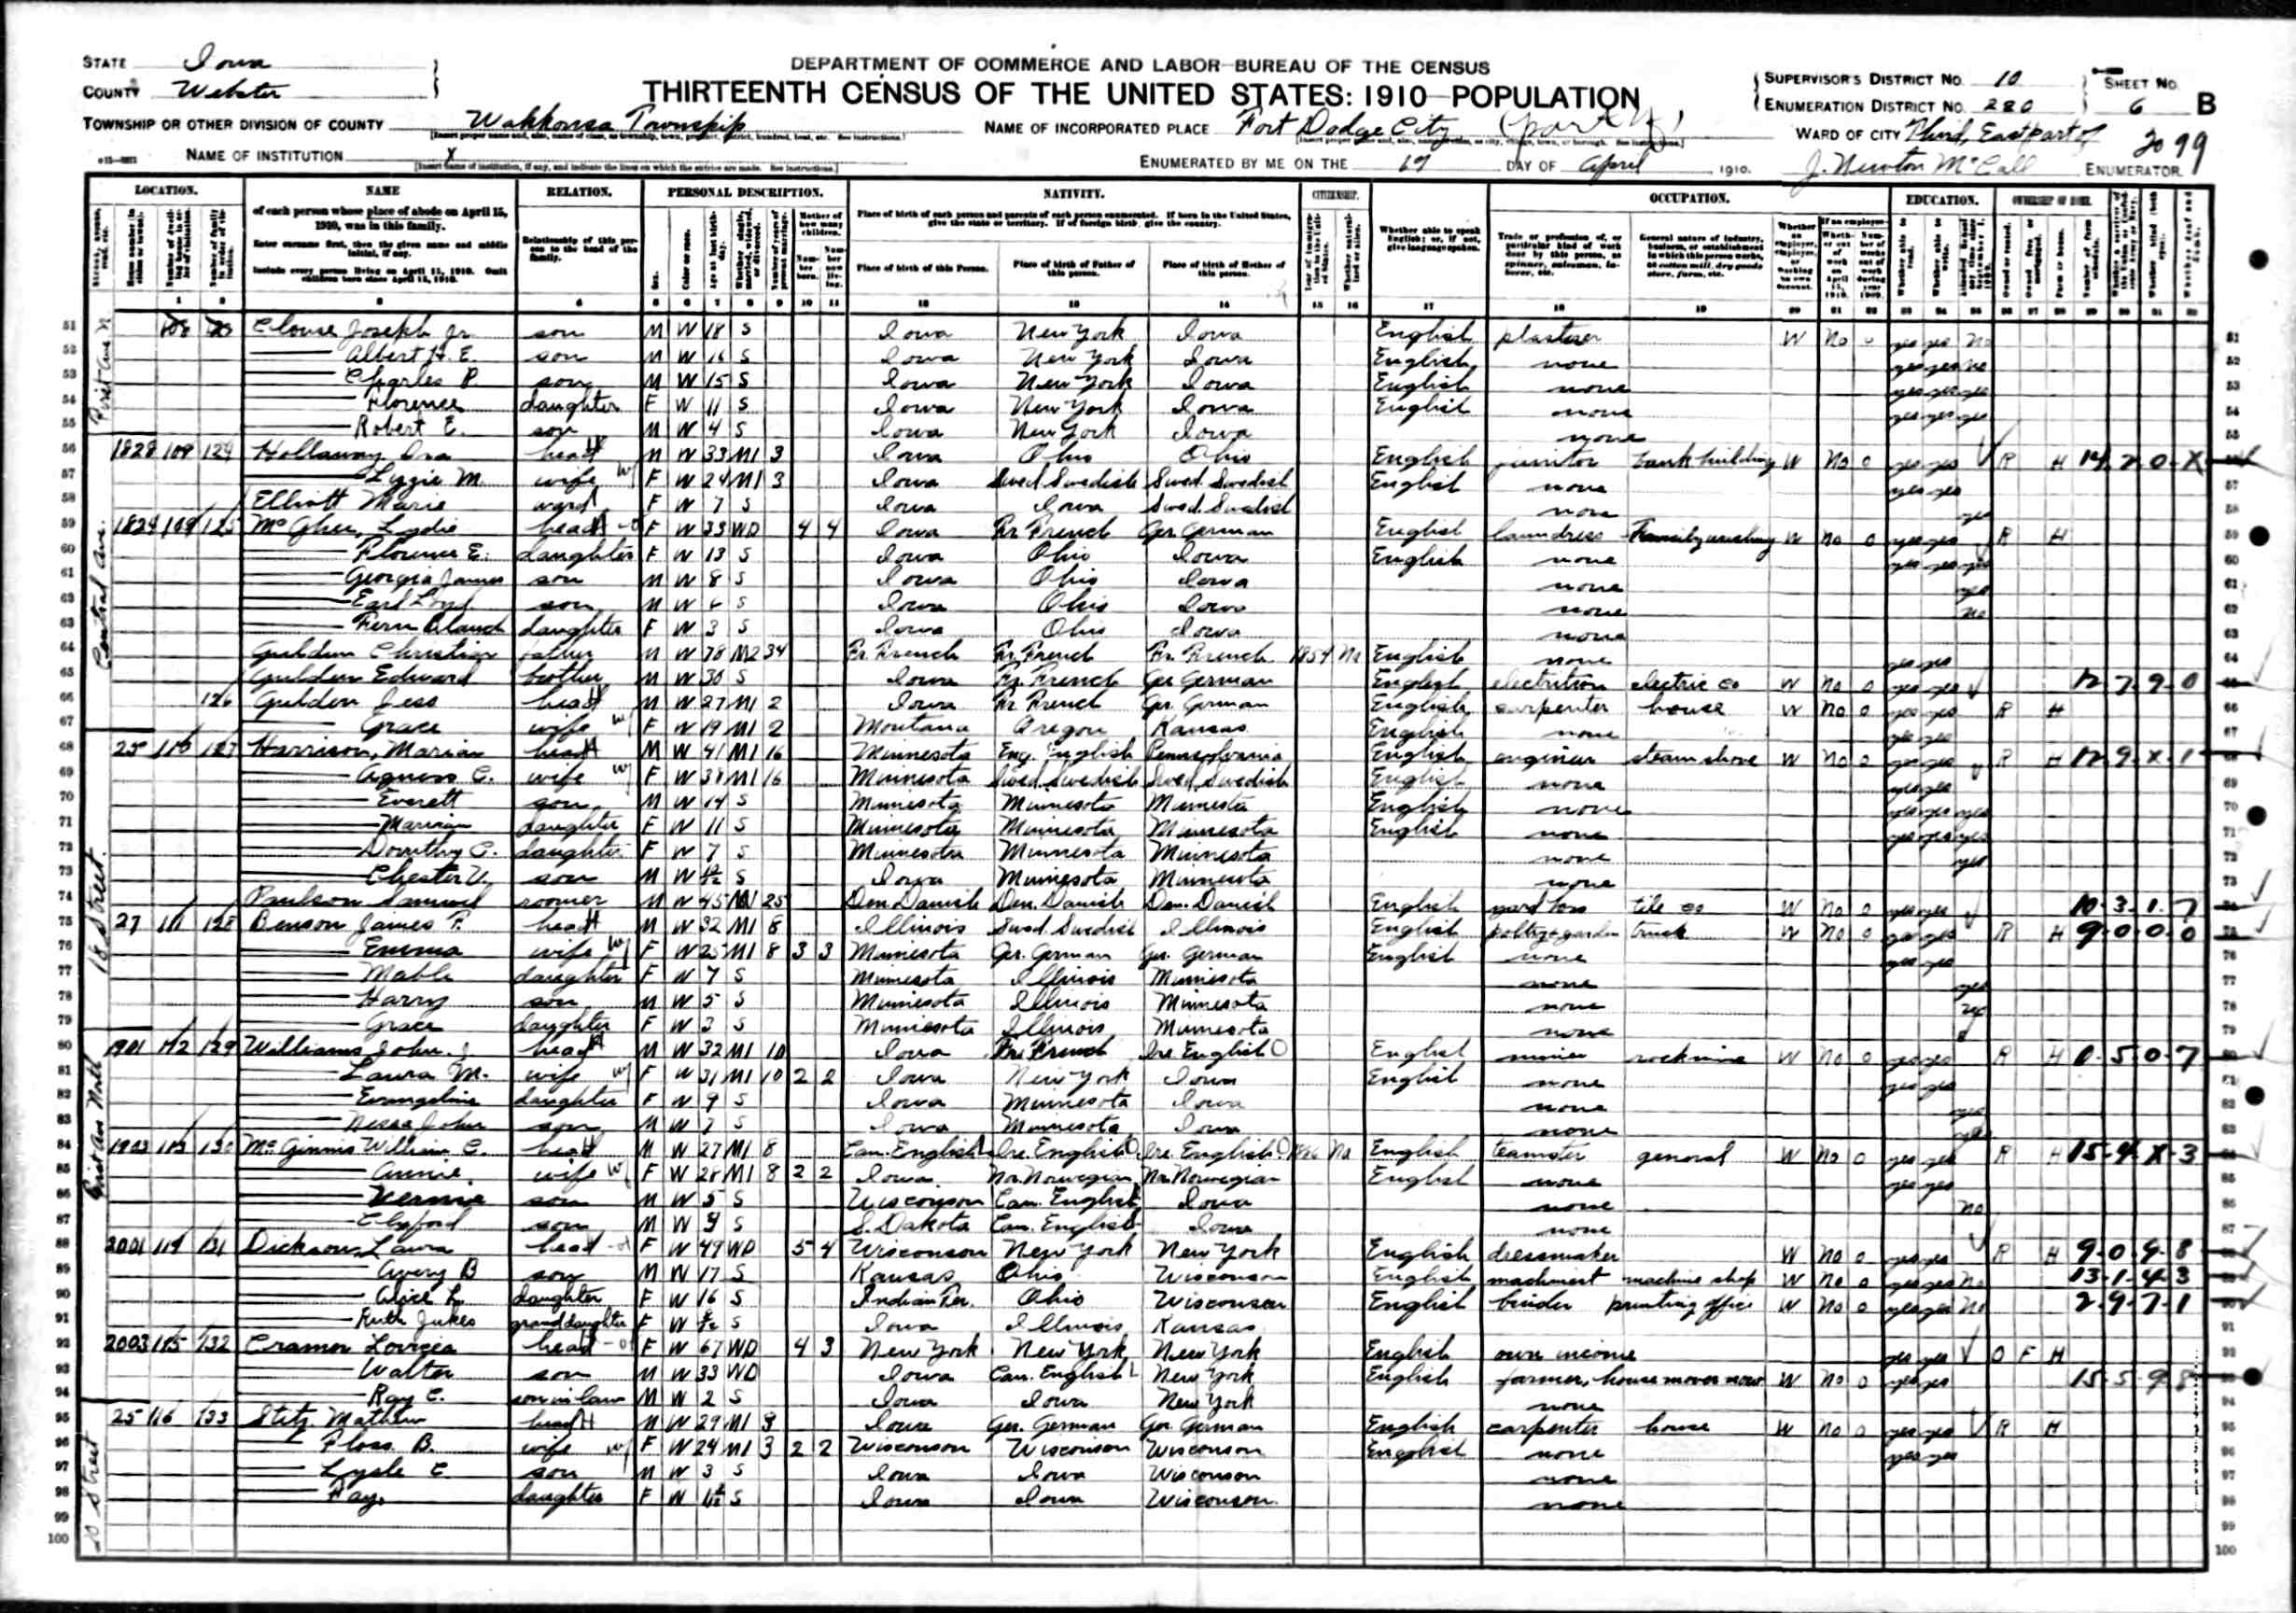 STATE Iowa
COUNTY Webster
TOWNSHIP OR OTHER DIVISION OF COUNTY Wahkonsa Township
NAME OF INSTITUTION X
DEPARTMENT OF COMMERCE AND LABOR—BUREAU OF THE CENSUS
THIRTEENTH CENSUS OF THE UNITED STATES: 1910—POPULATION
NAME OF INCORPORATED PLACE Fort Dodge City (part of)
ENUMERATED BY ME ON THE 19 DAY OF April, 1910.
SUPERVISOR'S DISTRICT NO. 10
ENUMERATION DISTRICT NO. 280
SHEET NO. 6 B
WARD OF CITY Third, East part of
J. Newton McCall ENUMERATOR.
2099
LOCATION. NAME RELATION. PERSONAL DESCRIPTION. NATIVITY. CITIZENSHIP. OCCUPATION. EDUCATION. OWNERSHIP OF HOME.
of each person whose place of abode on April 15, 1910, was in this family.
Enter surname first, then the given name and middle initial, if any.
Include every person living on April 15, 1910. Omit children born since April 15, 1910.
Relationship of this person to the head of the family.
Place of birth of each person and parents of each person enumerated. If born in the United States, give the state or territory. If of foreign birth, give the country.
Place of birth of this Person. Place of birth of Father of this person. Place of birth of Mother of this person.
Whether able to speak English; or, if not, give language spoken.
51 Clouse Joseph Jr. son M W 18 S Iowa New York Iowa English plasterer W No 0 yes yes no
52 Albert H. E. son M W 16 S Iowa New York Iowa English none yes yes no
53 Charles P. son M W 15 S Iowa New York Iowa English none yes yes yes
54 Florence daughter F W 11 S Iowa New York Iowa English none yes yes yes
55 Robert E. son M W 4 S Iowa New York Iowa none
56 1828 108 124 Hollaway Ira head M W 33 M1 3 Iowa Ohio Ohio English janitor bank building W No 0 yes yes R H
57 Lizzie M wife F W 24 M1 3 Iowa Swed. Swedish Swed. Swedish English none yes yes
58 Elliott Marie ward F W 7 S Iowa Iowa Swed. Swedish none yes
59 1829 109 125 McGhee, Lydie head F W 33 WD 4 4 Iowa Fr. French Ger. German English laundress Family washing W no 0 yes yes R H
60 Florence E. daughter F W 13 S Iowa Ohio Iowa English none yes yes yes
61 Georgia James son M W 8 S Iowa Ohio Iowa none yes
62 Earl Loyd son M W 6 S Iowa Ohio Iowa none no
63 Fern Blanch daughter F W 3 S Iowa Ohio Iowa none
64 Gulden Christian father M W 78 M2 34 Fr. French Fr. French Fr. French 1854 Na English none yes yes
65 Gulden Edward brother M W 30 S Iowa Fr. French Ger German English electrition electric co W no 0 yes yes 12 7 9 0
66 126 Gulden Jess head M W 27 M1 2 Iowa Fr French Ger. German English carpenter house W no 0 yes yes R H
67 Grace wife F W 19 M1 2 Montana Oregon Kansas English none yes yes
68 25 110 127 Harrison, Marian head M W 41 M1 16 Minnesota Eng. English Pennsylvania English engineer steam shove W No 0 yes yes R H 12 9 X 1
69 Agness C. wife F W 38 M1 16 Minnesota Swed Swedish Swed Swedish English none yes yes
70 Everett son M W 14 S Minnesota Minnesota Minnesota English none yes yes yes
71 Marian daughter F W 11 S Minnesota Minnesota Minnesota English none yes yes yes
72 Dorothy C. daughter F W 7 S Minnesota Minnesota Minnesota none yes
73 Chester V. son M W S Iowa Minnesota Minnesota none
74 Paulson Samuel roomer M W 45 M1 25 Den. Danish Den. Danish Den. Danish English yard boss tile co W No 0 yes yes 10 3 1 7
75 27 111 128 Benson James P. head M W 32 M1 8 Illinois Swed Swedish Illinois English truck W No 0 yes yes R H 9 0 0 0
76 Emma wife F W 25 M1 8 3 3 Minnesota Ger. German Ger. German English none yes yes
77 Mable daughter F W 7 S Minnesota Illinois Minnesota none yes
78 Harry son M W 5 S Minnesota Illinois Minnesota none
79 Grace daughter F W 3 S Minnesota Illinois Minnesota none
80 1901 112 129 Williams John. J head M W 32 M1 10 Iowa Fr. French Ire English English miner rock mine W No 0 yes yes R H 0 5 0 7
81 Laura M. wife F W 31 M1 10 2 2 Iowa New York Iowa English none yes yes
82 Evangeline daughter F W 9 S Iowa Minnesota Iowa none yes
83 John son M W 7 S Iowa Minnesota Iowa none yes
84 1903 113 130 McGinnis William C. head M W 27 M1 8 Can. English Ire. English Ire. English Na English teamster general W No 0 yes yes R H 15 4 X 3
85 Annie wife F W 28 M1 8 2 2 Iowa Nor. Norwegian Nor Norwegian English none yes yes
86 Vernie son M W 5 S Wisconson Can. English Iowa none no
87 Clyford son M W 4 S S. Dakota Can. English Iowa none
88 2001 114 131 Dickson, Laura head F W 49 WD 5 4 Wisconson New York New York English dressmaker W No 0 yes yes R H 9 0 9 8
89 Avery B son M W 17 S Kansas Ohio Wisconson English machinist machine shop W No 0 yes yes No 13 1 4 3
90 Alice L. daughter F W 16 S Indian Ter. Ohio Wisconson English binder printing office W No 0 yes yes No 2 9 7 1
91 Ruth Jukes granddaughter F W S Iowa Illinois Kansas
92 2003 115 132 Cramer Lovicea head F W 67 WD 4 3 New York New York New York English own income yes yes O F H
93 Walter son M W 33 WD Iowa Can. English New York English farmer, house mover now W No 0 yes yes 15 5 9 8
94 Ray C. son in law M W 2 S Iowa Iowa New York none
95 25 116 133 Stitz Mathew head M W 29 M1 3 Iowa Ger. German Ger German English carpenter house W No 0 yes yes R H
96 Floss B. wife F W 24 M1 3 2 2 Wisconson Wisconson Wisconson English none yes yes
97 Lysle C son M W 3 S Iowa Iowa Wisconson none
98 Fay. daughter F W S Iowa Iowa Wisconson none
99
100
First Ave N
Central Ave.
18 Street.
First Av North
20 Street